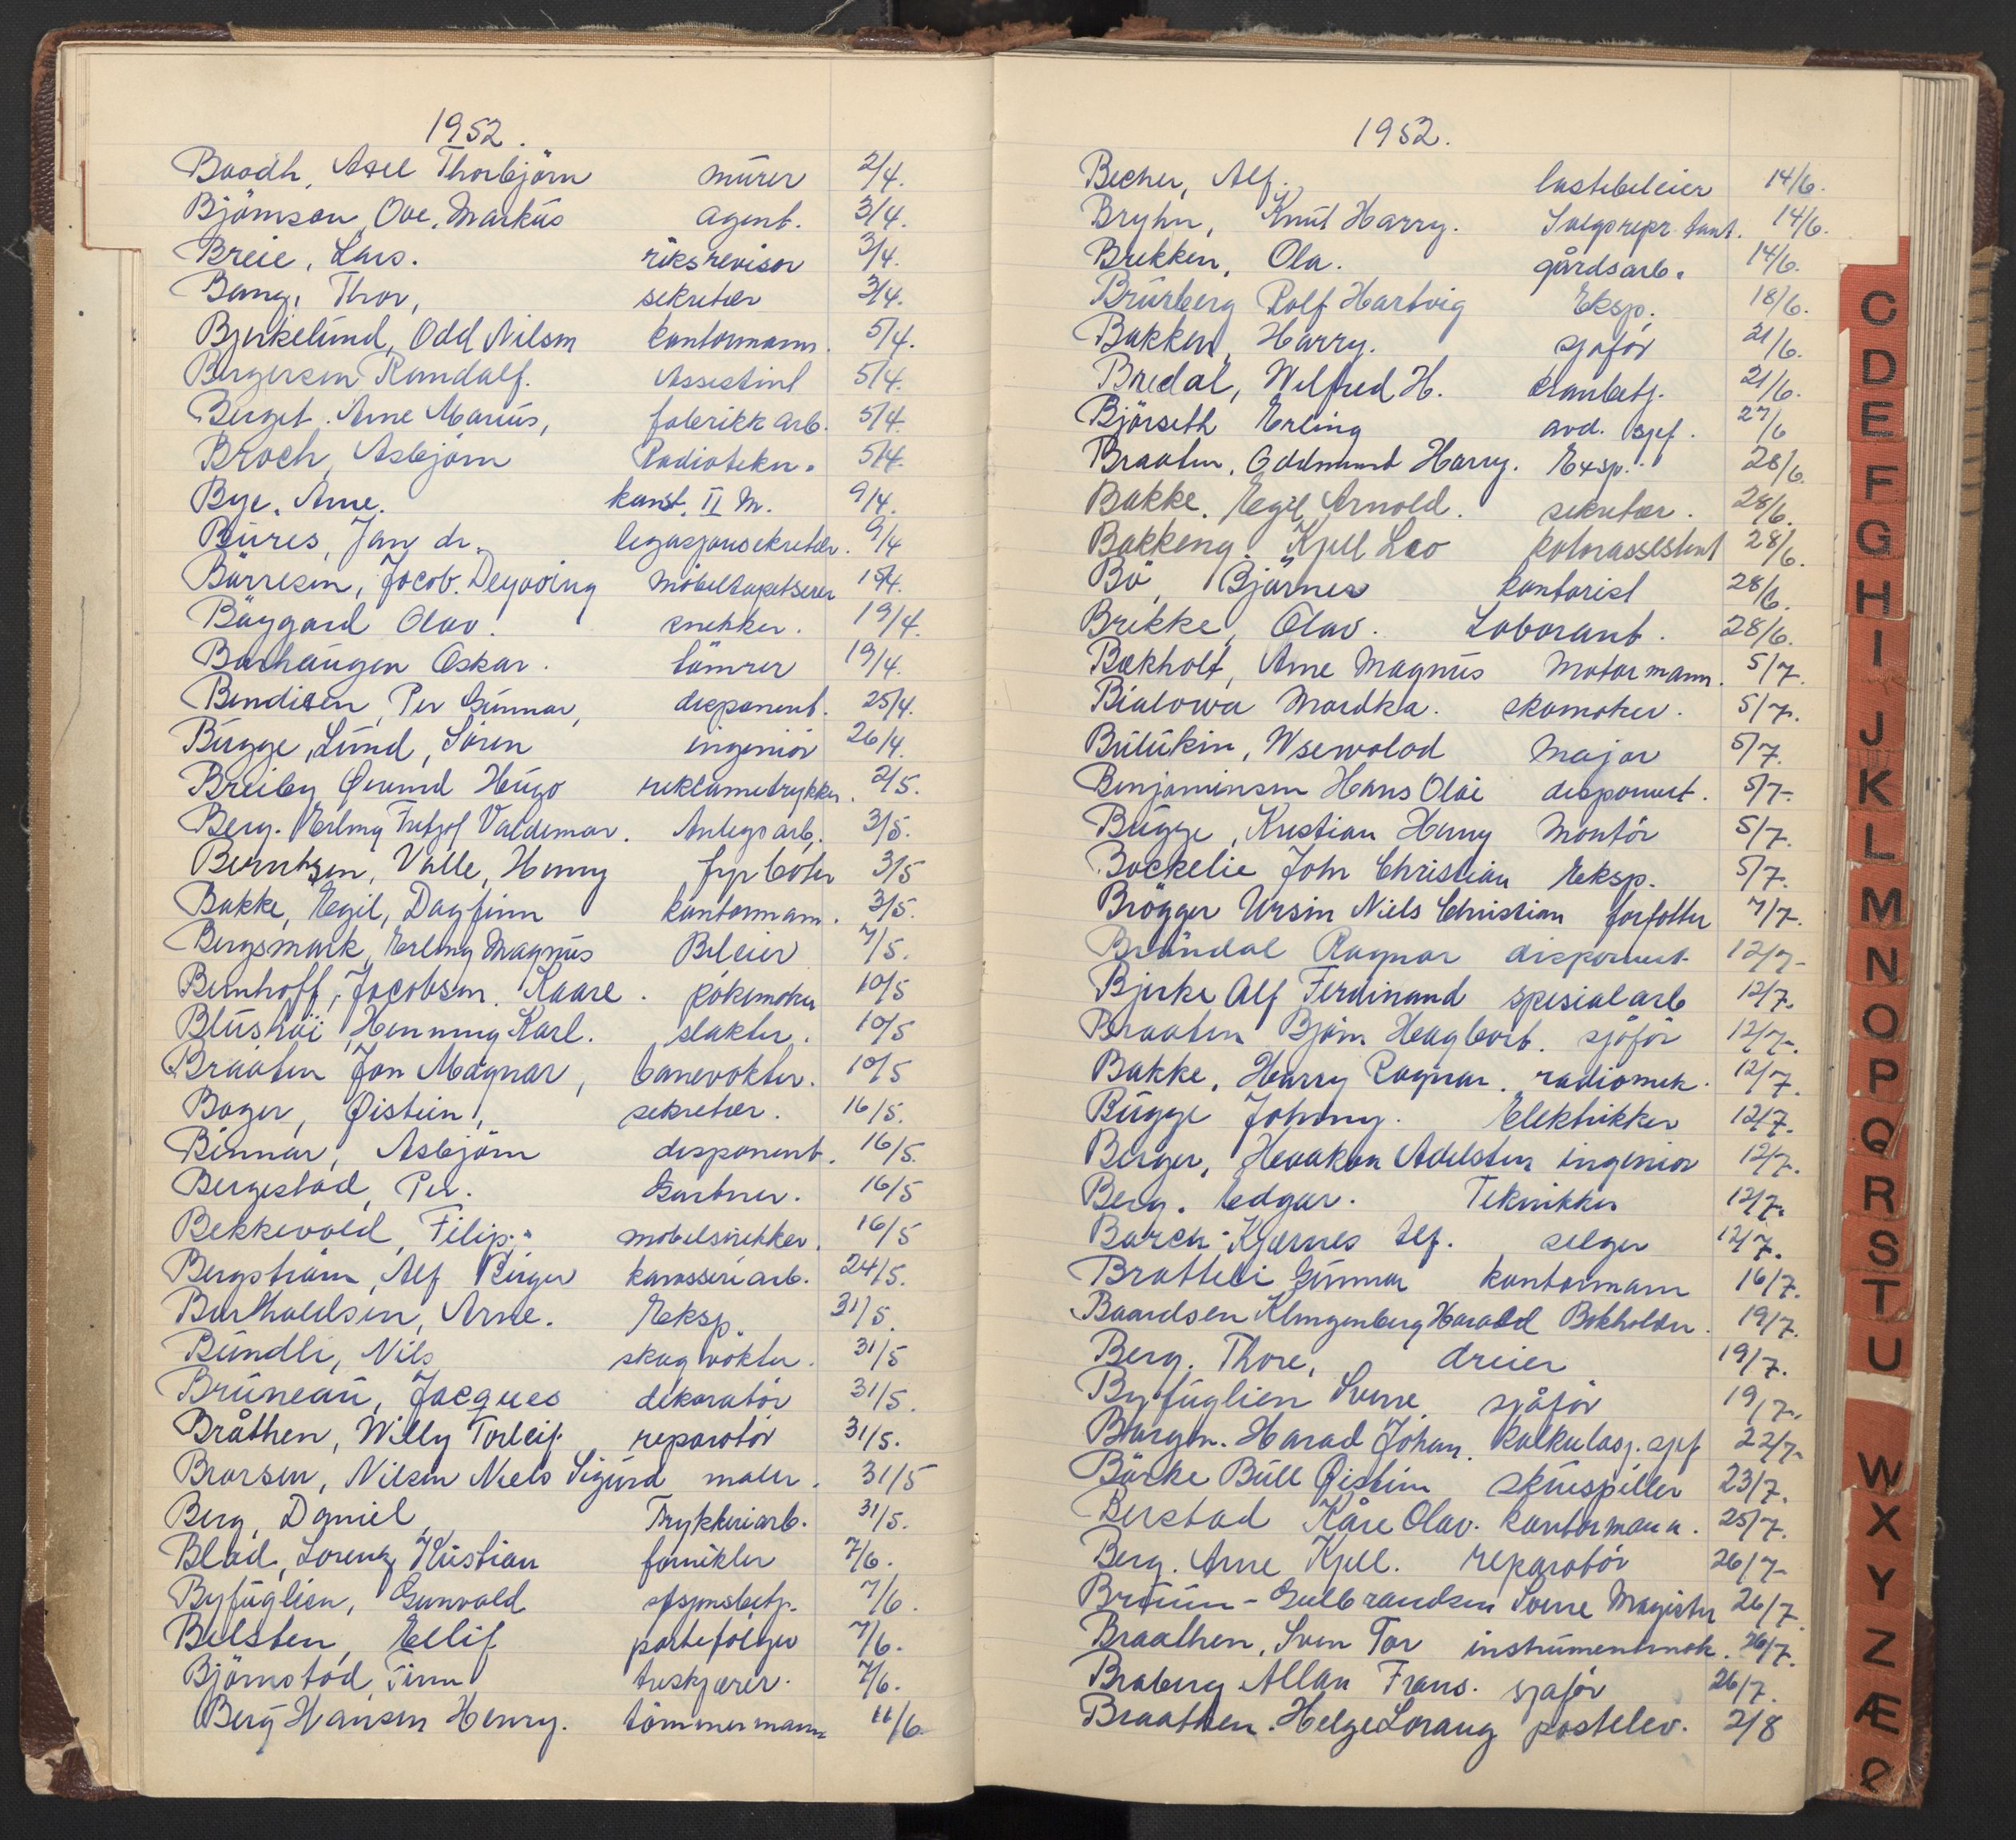 1952.
Baadh, Axel Thorbjörn mürer 2/4.
Björnson, Ove, Marküs agent. 3/4.
Breie, Lars. riksrevisor 3/4.
Bang, Thor, sekretær 3/4.
Bjerkelünd, Odd Nilsen kontormann. 5/4.
Bergersen Randalf. Assistent 5/4.
Berget. Arne Mariüs, fabrikk arb. 5/4.
Broch, Asbjörn Radiotekn. 5/4.
Bye, Arne. konst. II M. 9/4.
Büres, Jan dr. legasjonsekretær. 9/4
Börresen, Jocob. möbeltapetserer 15/4.
Böygard Olav. snekker. 19/4.
Barhaügen Oskar. tömrer 19/4.
Bendisen, Per Günnar, disponent. 25/4.
Bügge, Lünd, Sören ingeniör 26/4.
Breiby Øivind Hügo reklametrykker. 2/5.
Berg. Erling Fritjof Valdemar. Anlegs arb. 3/5.
Berntsen, Valle, Henry fyrböter 3/5
Bakke, Egil, Dagfinn kontormann. 3/5.
Bergsmark, Erling Magnüs Bileier 7/5.
Bernhoff, Jacobsen. Kaare. 10/5
Henning Karl. slakter. 10/5
Braaten Jon Magnar, banevokter. 10/5
Bager, Øistein, sekretær. 16/5.
Binnar, Asbjörn disponent. 16/5.
Bergestad, Per. Gartner. 16/5
Bekkevold, Filip. möbelsnekker. 16/5
Bergström, Alf Birger karosseri arb. 24/5.
Bartholdsen, Arne. Eksp. 31/5.
Bündli, Nils skogvokter. 31/5
Brüneaü, Jacques dekoratör 31/5.
Bråthen, Willy Torleif. reparatör 31/5.
Brorsen, Nilsen Niels Sigürd maler. 31/5
Berg, Daniel Trykkeriarb. 31/5.
Blad, Lorentz Kristian fornikler 7/6.
Byfüglien, Gunvald 7/6.
Belsten, Ellif portefölger 7/6.
Björnstad, Finn treskjærer. 7/6.
Berg Hansen Henry. tömmermann 11/6
1952.
Becher, Alf. lastebileier 14/6.
Bryhn, Knut Harry. Salgsrepr. tant. 14/6.
Brekken, Ola. gårdsarb. 14/6.
Brürberg Rolf Hartvig Eksp. 18/6.
Bakken, Harry. sjåför 21/6.
Bredal, Wilfred H. 21/6.
Björseth Erling avd. sjef. 27/6
Braaten, Oddmund Harry. Exsp. 28/6.
Bakke. Egil Arnold. sekretær. 28/6.
Bakkeng. Kjell Leo kotorassistent 28/6.
Bö, Bjärnes kontorist 28/6.
Brekke, Olav. Laborant. 28/6.
Bækholt, Arne Magnüs Motormann. 5/7.
Bialowa Mordka. skomoker. 5/7.
Bülükin, Wsewolod Major 5/7.
Benjaminsen Hans Olai disponent. 5/7.
Bügge, Kristian Harry Montör 5/7.
Bockelie John Christian Eksp. 5/7.
Brögger Ursin Niels Christian forfatter 7/7.
Bröndal Ragnar disponent 12/7-
Bjerke Alf Ferdinand spesialarb 12/7.
Braaten Björn Hagbart. sjåför 12/7-
Bakke, Harry Ragnar. radiomek. 12/7.
Bügge Johnny. Elektrikker 12/7.
Berger, Haakon Adelsten ingeniör 12/7.
Berg. Edgar. Teknikker 12/7.
Barch-Kjærnes Alf. selger 12/7.
Bratteli Günnar kontormann 16/7.
Baardsen Klingenberg Harald Bokholder. 19/7.
Berg. Thore, dreier 19/7.
Byfüglien Sverre sjåför 19/7.
Bargen. Harad Johan. kalkulasj. sjef 22/7-
Börke Büll Øistein sküespiller 23/7.
Berstad Kåre Olav. kontormann. 25/7.
Berg. Arne Kjell. reparatör 26/7-
Brüün-Gulbrandsen Sverre Magister 26/7
Braathen, Sven Tor instrümentmak. 26/7.
Braberg Allan Frans. sjåför 26/7.
Braathen. Helge Lorang postelev. 2/8
C
D
E
F
G
H
I
J
K
L
M
N
O
P
Q
R
S
T
U
W
X
Y
Z
Æ